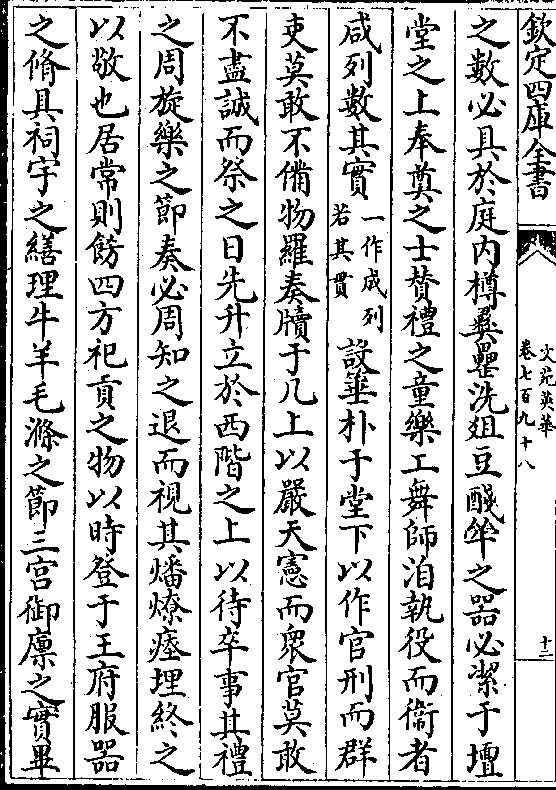 欽定四庫全書
文苑英華
卷七百九十八
十二
之數必具於庭內樽彝罍洗俎豆醆斝之器必潔于壇
堂之上奉奠之士賛禮之童樂工舞師洎執役而衛者
咸列數其實
一作咸列
若其貫
設箠朴于堂下以作官刑而群
吏莫敢不備物羅奏牘于几上以嚴天憲而衆官莫敢
不盡誠而祭之日先升立於西階之上以待卒事其禮
之周旋樂之節奏必周知之退而視其燔燎瘞埋終之
以敬也居常則飭四方祀貢之物以時登于王府服器
之脩具祠宇之繕理牛羊毛滌之節三宮御廩之實畢